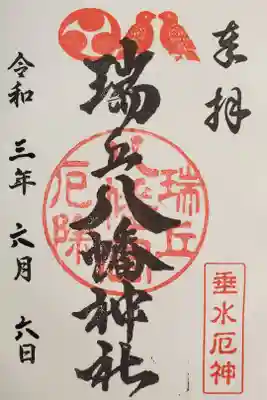 奉拝
瑞丘八幡神社
瑞丘
厄除
垂水厄神
令和三年六月六日